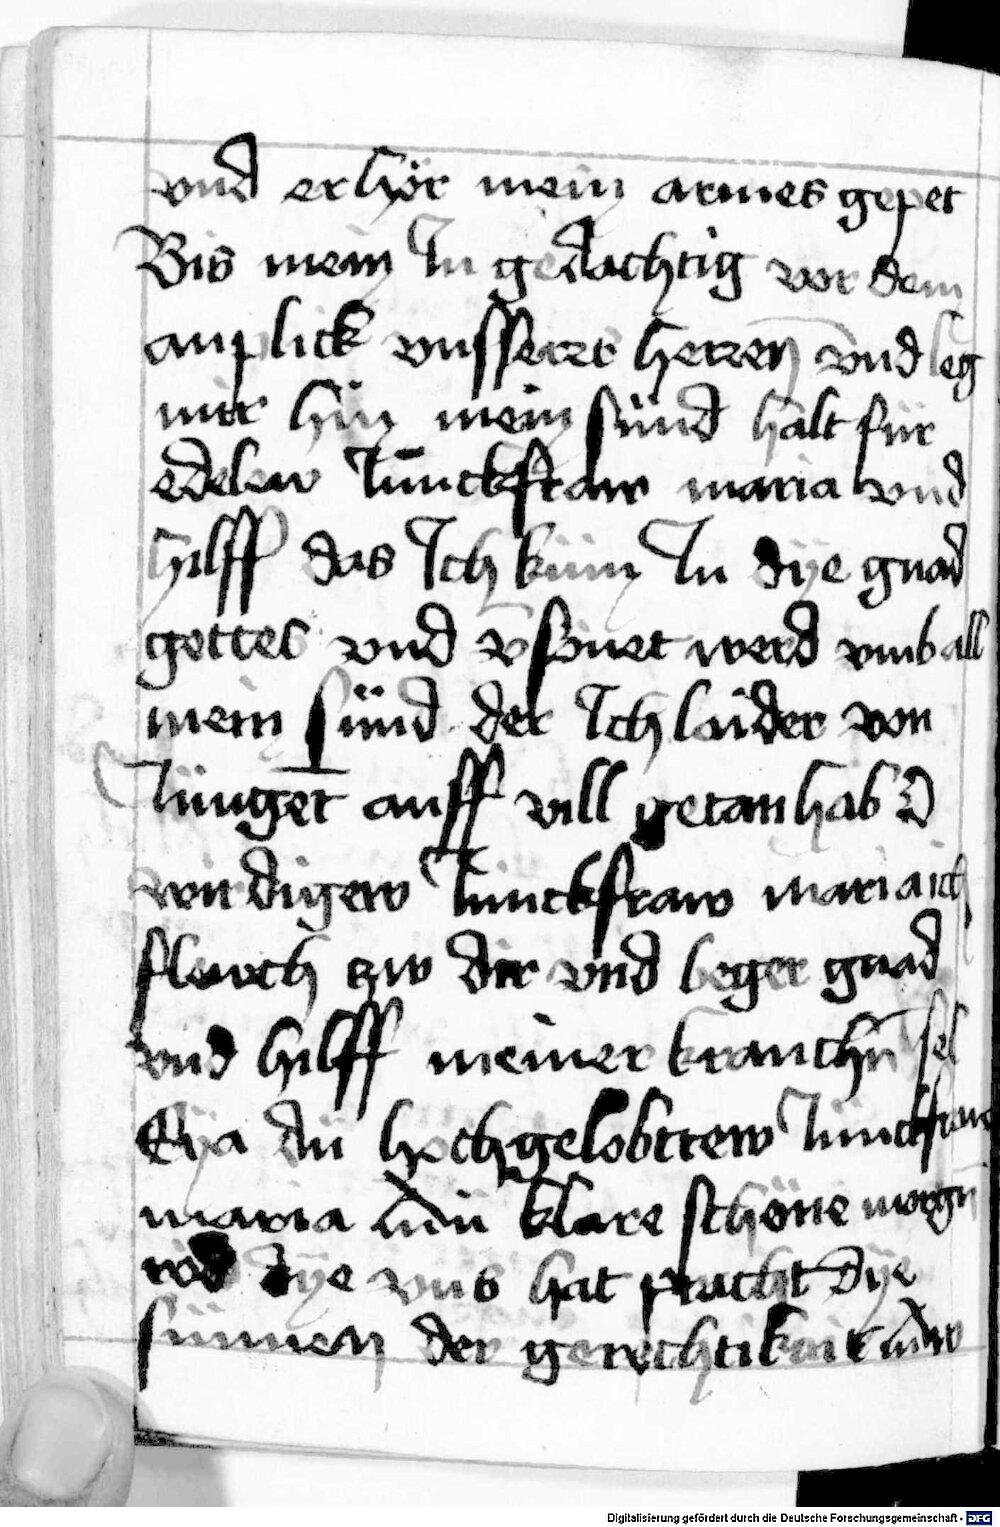 vnd erhör mein armes gepet
Bis mein In gedachtig vor dem
anplick vnsserer herren vnd leg
mir hin mein sünd halt für
edelew Junckfraw maria vnd
hilff das Ich küm In dÿe gnad
gottes vnd v̄sönet werd vmb all
mein sünd der Ich laider von
Jüngēt auff vill getan hab O
wirdigew Junckfraw maria ich
flewch zw dir vnd beger gnad
vnd hilff meiner kranchn̄ sel
Eÿa dü hochgelobttew Junckfraw
maria dü klare schöne morgn̄
röd dÿe vns hat pracht dÿe
sünnen der gerechtikait
Digitalisierung gefördert durch die Deutsche Forschungsgemeinschaft - DFG